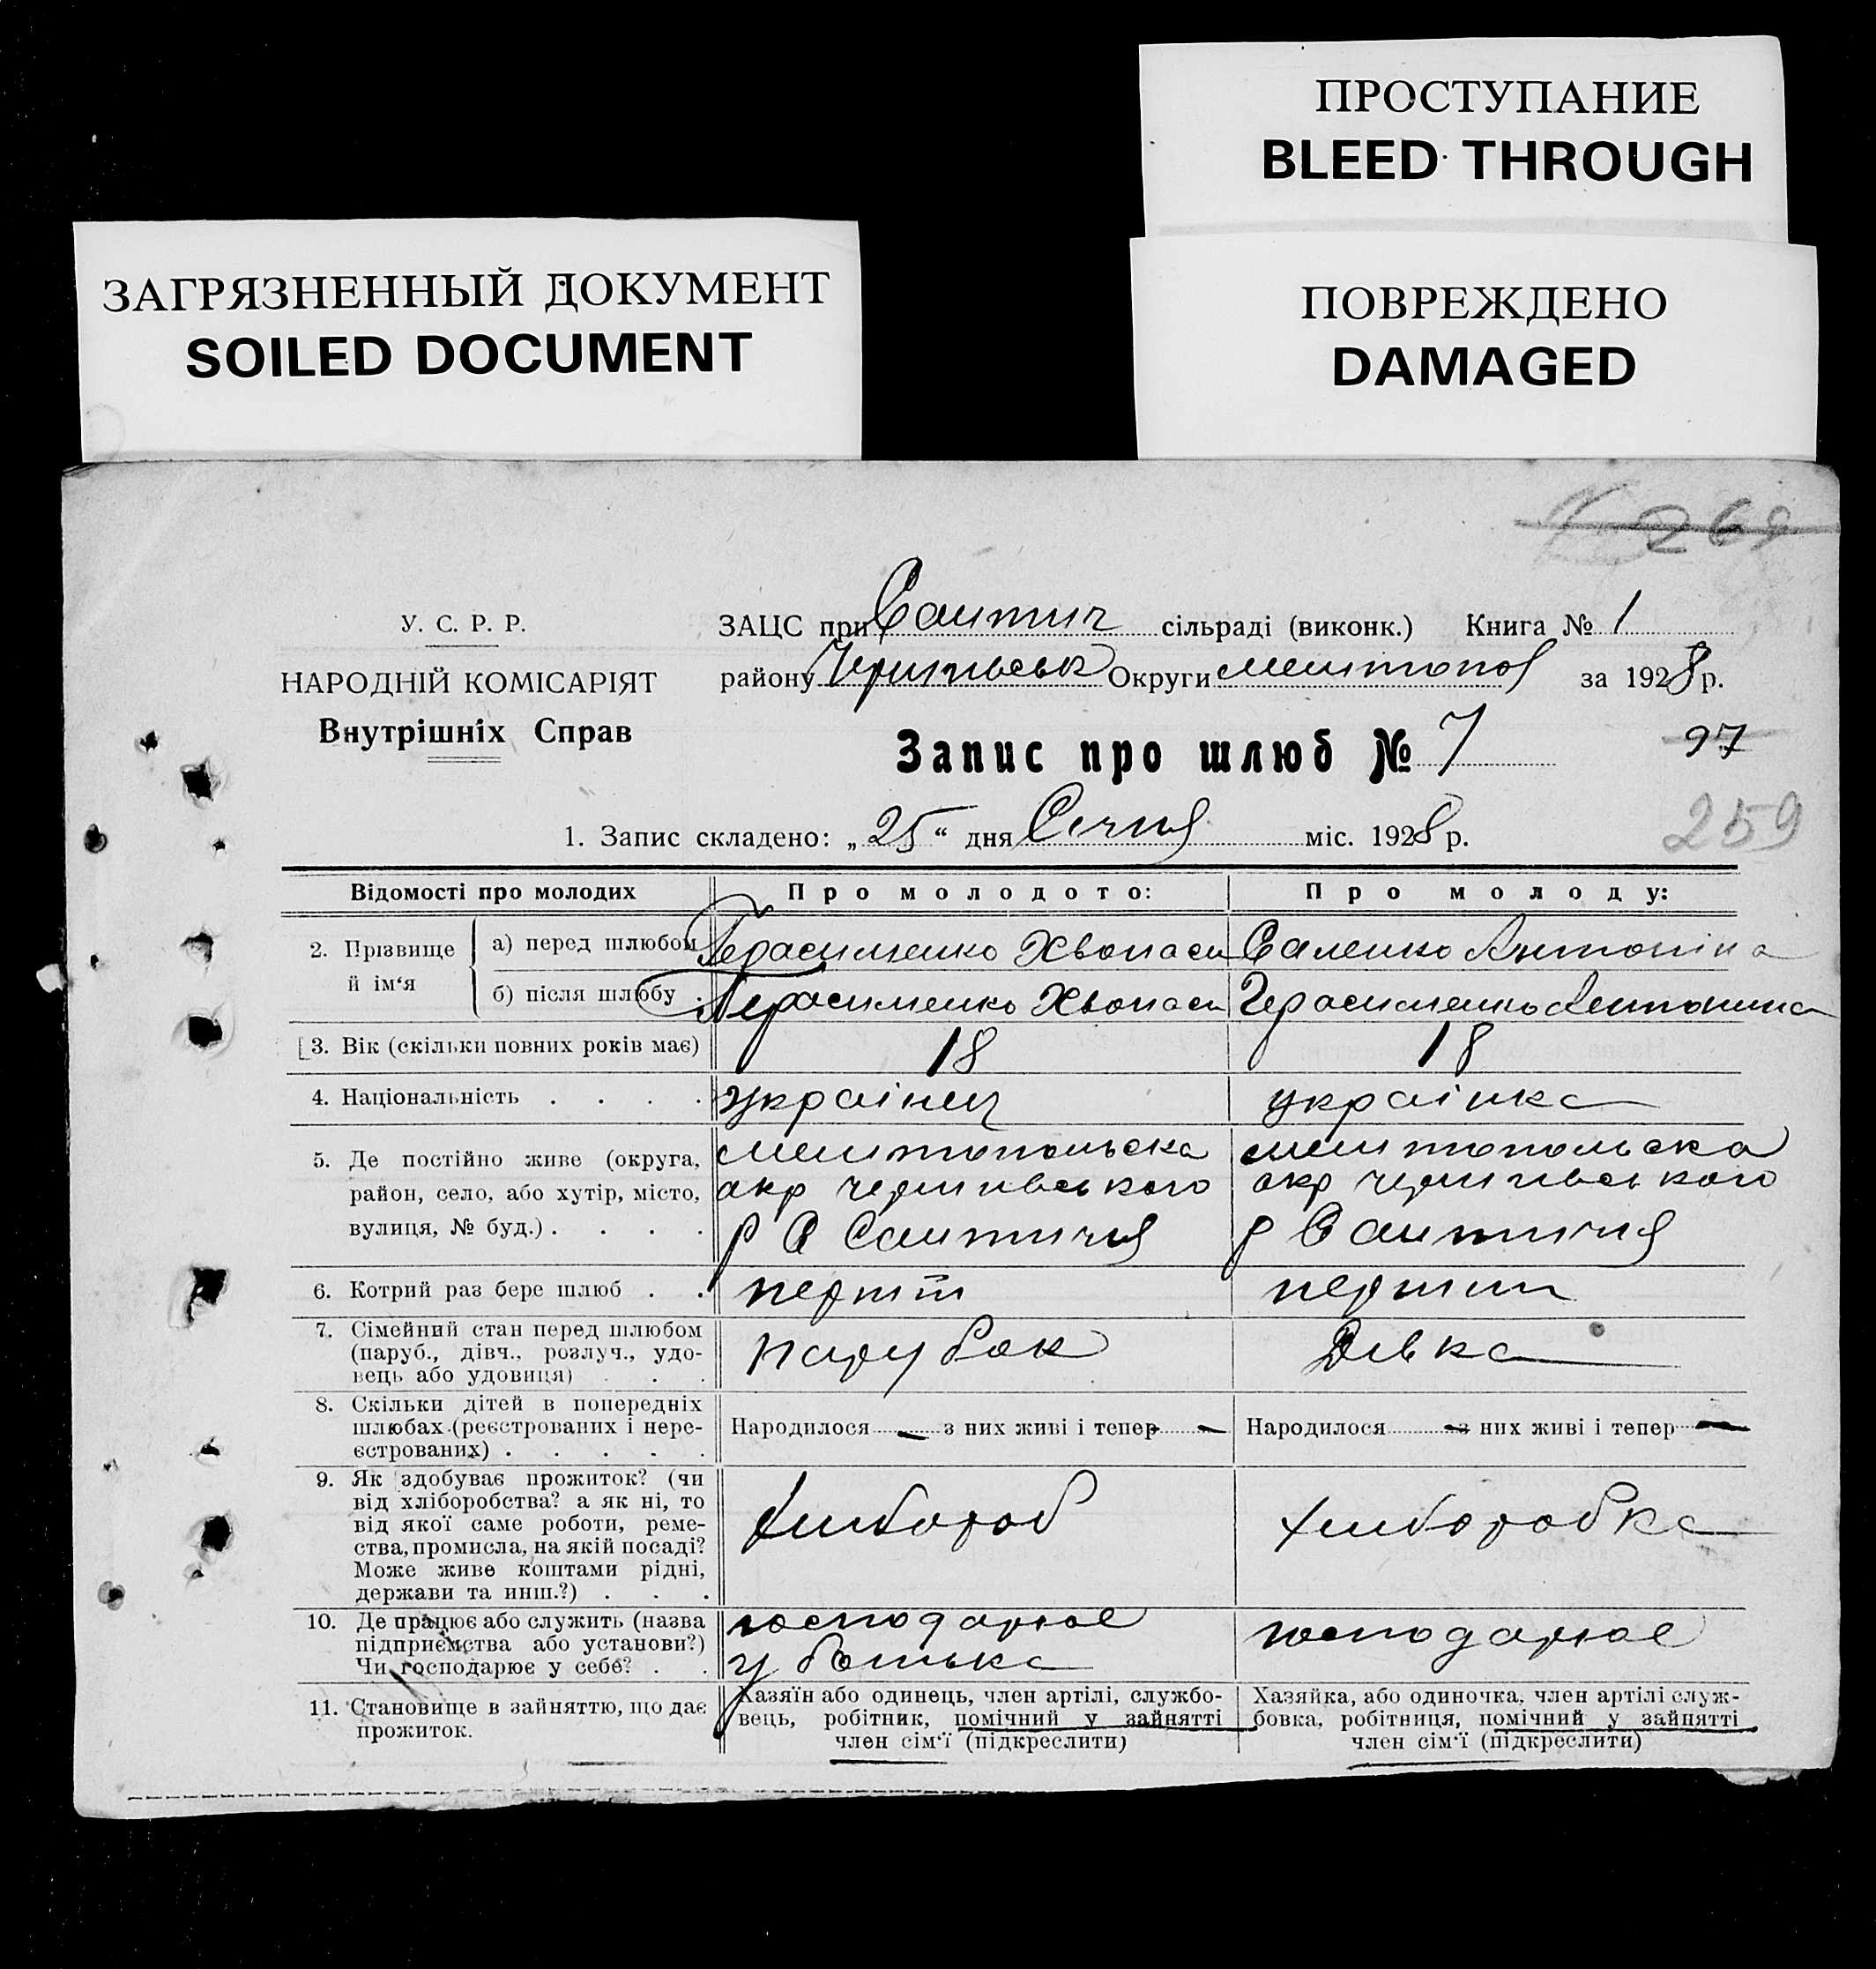 ПРОСТУПАНИЕ
BLEED THROUGH
ЗАГРЯЗНЕННЫЙ ДОКУМЕНТ
SOILED DOCUMENT
ПОВРЕЖДЕНО
DAMAGED
269
У. С. Р. Р.
НАРОДНІЙ КОМІСАРІЯТ
Внутрішніх Справ
ЗАЦС при Салтич сільраді (виконк.) Книга № 1
району Чернігівськ Округи мелітопол за 1928 р.
Запис про шлюб № 7
97
1. Запис складено: „25“ дня Січня міс. 1928 р.
259
Відомості про молодих Про молодого: Про молоду:
2. Прізвище й ім‘я
а) перед шлюбом Герасименко Хвонаси Саленко Антоніна
б) після шлюбу Герасименко Хвонаси Герасименко Антонина
3. Вік (скільки повних років має) 18 18
4. Національність . . . . українец українка
5. Де постійно живе (округа, район, село, або хутір, місто, вулиця, № буд.) . . . .
мелитопольска
окр чернигвського
р С Салтичия
мелитопольска
окр чернигвського
р Салтичия
6. Котрий раз бере шлюб . . перший первий
7. Сімейний стан перед шлюбом
(паруб., дівч., розлуч., удо-
вець або удовиця) . . .
парубок Дівка
8. Скільки дітей в попередніх
шлюбах (реєстрованих і нере-
єстрованих) . . . . .
Народилося — з них живі і тепер —
Народилося — з них живі і тепер —
9. Як здобуває прожиток? (чи
від хліборобства? а як ні, то
від якої саме роботи, реме-
ства, промисла, на якій посаді?
Може живе коштами рідні,
держави та инш.?) . . .
хлибороб хлиборобка
10. Де працює або служить (назва
підприємства або установи?)
Чи господарює у себе? . .
господарює
у батька
господарює
11. Становище в зайняттю, що дає
прожиток.
Хазяїн або одинець, член артілі, службо-
вець, робітник, помічний у зайнятті
член сім‘ї (підкреслити)
Хазяйка, або одиночка, член артілі служ-
бовка, робітниця, помічний у зайнятті
член сім‘ї (підкреслити)